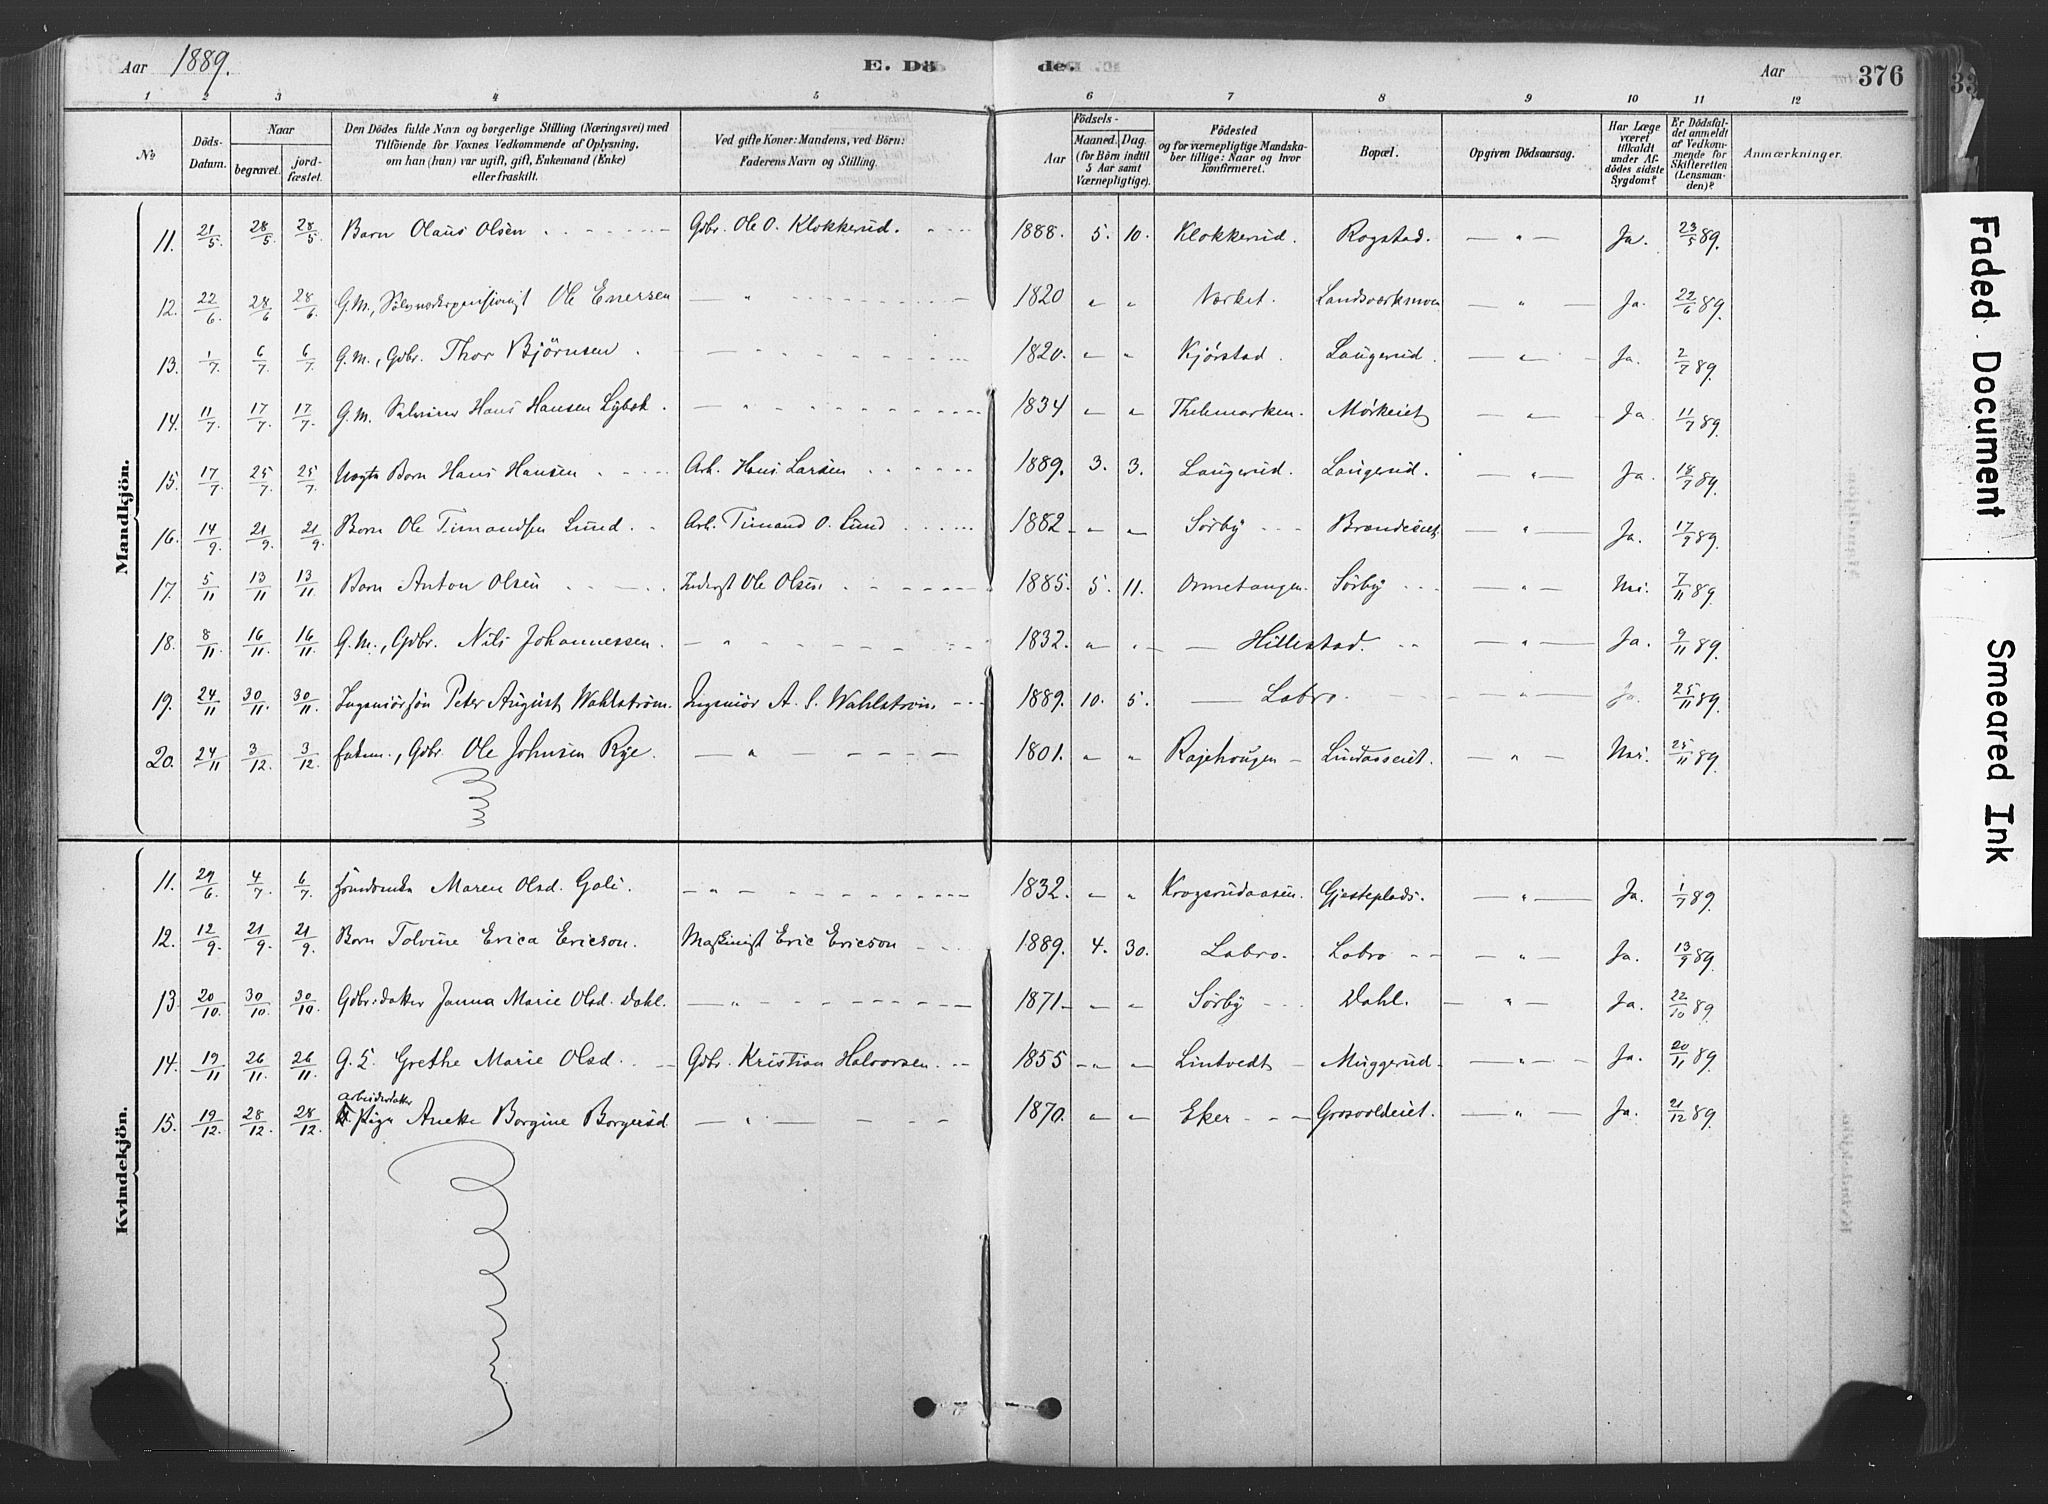 Aar 1889. E. Dö de. Aar 376
1 2 3 4 5 6 7 8 9 10 11 12
No Döds-Datum. Naar begravet. jord-fæstet. Den Dödes fulde Navn og borgerlige Stilling (Næringsvei) med Tilföiende for Voxnes Vedkommende af Oplysning, om han (hun) var ugift, gift, Enkemand (Enke) eller fraskilt. Ved gifte Koner: Mandens, ved Börn: Faderens Navn og Stilling. Födsels- Aar Maaned. Dag. (for Börn indtil 5 Aar samt Værnepligtige). Födested og for værnepligtige Mandskaber tillige: Naar og hvor konfirmeret. Bopæl. Opgiven Dödsaarsag. Har Læge været tilkaldt under Afdödes sidste Sygdom? Er Dödsfaldet anmeldt af Vedkommende for Skifteretten (Lensmanden)? Anmærkninger.
Mandkjön.
11. 21/5 28/5 28/5 Barn Olaus Olsen Gdbr. Ole O. Klokkerud. 1888. 5. 10. Klokkerud. Rogstad. — " — Ja. 23/5 89.
12. 22/6 28/6 28/6 G.M., Ole Enersen — " — 1820 " " Værket. Landsværksmoen — " — Ja. 22/6 89.
13. 1/7 6/7 6/7 G.M., Gdbr. Thor Björnsen — " — 1820. " " Kjørstad. Laugerud. — " — Ja. 2/7 89.
14. 11/7 17/7 17/7 G.M. Hans Hansen — " — 1834 " " Thelemarken. Mörkeiet — " — Ja. 11/7 89.
15. 17/7 25/7 25/7 Uægte Barn Hans Hansen Arb. Hans Larsen 1889. 3. 3. Laugerud. Laugerud. — " — Ja. 18/7 89.
16. 14/9 21/9 21/9 Barn Ole Timandsen Lund Arb. Timand O. Lund 1882 " " Sörby Brændeseiet — " — Ja. 17/9 89.
17. 5/11 13/11 13/11 Barn Anton Olsen Inderst Ole Olsen 1885. 5. 11. Ormetangen. Sörby — " — Nei. 7/11 89.
18. 8/11 16/11 16/11 G.M., Gdbr. Nils Johannessen. — " — 1832. " " — Hillestad. — " — Ja. 9/11 89.
19. 24/11 30/11 30/11 Ingeniörsön Peter August Wahlström. Ingeniör A. S. Wahlström 1889. 10. 5. — Labro. — " — Ja. 25/11 89.
20. 24/11 3/12 3/12 Enkem., Gdbr. Ole Johnsen Rye. — " — 1801. " " Rajehougen Lindaaseiet. — " — Nei. 25/11 89.
Kvindekjön.
11. 29/6 4/7 6/7 Maren Olsd. — " — 1832. " " Krogsrudaasen. Gjesteplads. — " — Ja. 1/7 89.
12. 12/9 21/9 21/9 Barn Tolvine Erica Ericson. Maskinist Eric Ericson 1889. 4. 30. Labro. Labro — " — Ja. 13/9 89.
13. 20/10 30/10 30/10 Gdbr:datter Janna Marie Olsd. Dahl. — " — 1871 " " Sörby Dahl. — " — Ja. 22/10 89.
14. 19/11 26/11 26/11 G.K. Grethe Marie Olsd. Gdbr. Kristian Halvorsen. 1855 " " Lintvedt Muggerud — " — Ja. 20/11 89.
arbeiderdatter
15. 19/12 28/12 28/12 Pige Anette Borgine Borgersd — " — 1870. " " Eker Grosvoldeiet. — " — Ja. 21/12 89.
Faded Document
Smeared Ink